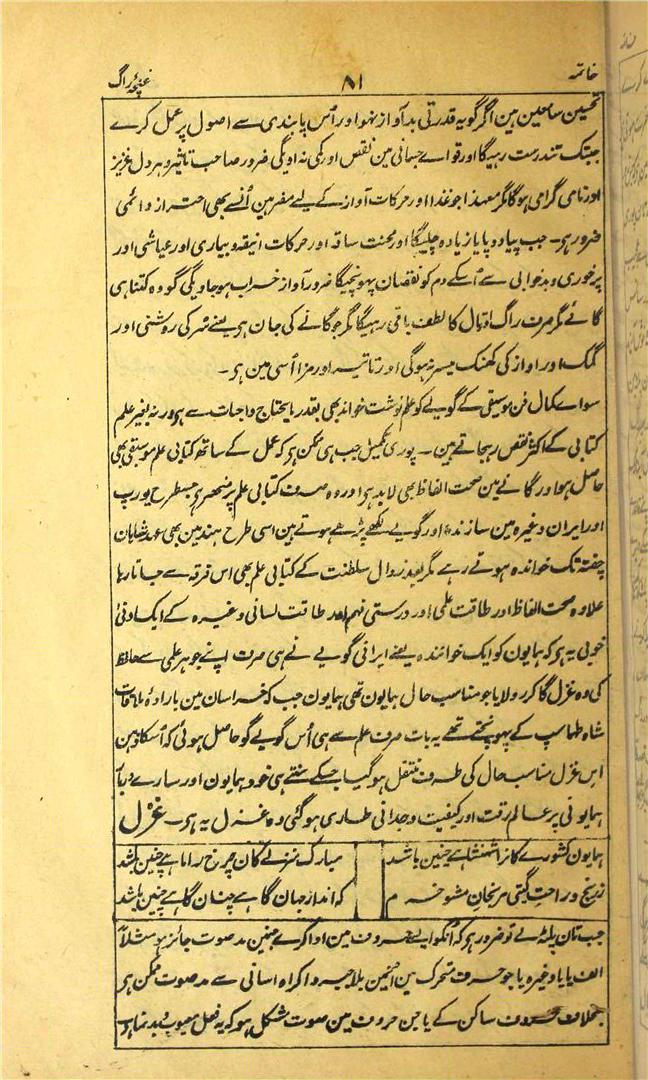 خاتمہ ۸۱ غنچۂ راگ
تحسین سامعین ہین اگر گویہ قدرتی بدآواز نہو اور اس پابندی سے اصول پر عمل کرے
جبتک تندرست رہیگا اور قواے جسمانی مین نقص اور کمی نہ اویگی ضرور صاحب تاثیر و ہر دل عزیز
اور نامی گرامی ہوگا مگر معہذا جو غذا اور حرکات آواز کے لیے مضر ہین اُنسے بھی احتراز دائمی
ضرور ہے۔ جب پیادہ پا یا زیادہ چلیگا اور محنت ساقہ اور حرکات انیقہ و بیماری اور عیاشی اور
پرخوری و بدخوابی سے اُسکے دم کو نقصان پہونچیگا ضرور آواز خراب ہوجاویگی گو وہ کتنا ہی
گائے مگر صرف راگ ادتال کا لطف باقی رہیگا مگر جو گانے کی جان ہی یعنے سُر کی روشنی اور
گمک اور اواز کی کھنک میسر نہوگی اور تاثیر اور مزا اُسی مین ہی۔
سواے کمال فن موسیقی کے گویے کو علم نوشت خواند بھی بقدر مایحتاج واجبات سے ہی ورنہ بغیر علم
کتابی کے اکثر نقص رہجاتے ہین۔ پوری تکمیل جب ہی ممکن ہی کہ عمل کے ساتھ کتابی علم موسیقی بھی
حاصل ہو اور گانے مین صحت الفاظ بھی لابد ہی اور وہ صرف کتابی علم پر منحصر ہی جسطرح یورپ
اور ایران وغیرہ مین سازندہ اور گویے لکھے پڑھے ہوتے ہین اسی طرح ہند مین بھی عہد شاہان
چغتہ تک خواندہ ہوتے رہے مگر بعد زوال سلطنت کے کتابی علم بھی اس فرقہ سے جاتا رہا
علاوہ صحت الفاظ اور طاقت علمی اور درستی فہم اور طاقت لسانی وغیرہ کے ایک ادنیٰ
خوبی یہ ہی کہ ہمایون کو ایک خوانندہ یعنے ایرانی گویے نے ہی صرف اپنے جوہر علمی سے حافظ
کی وہ غزل گا کر رولایا جو مناسب حال ہمایون تھی ہمایون جب کہ خراسان مین بارادۂ ملاقات
شاہ طہماسپ کے پہونچے تھے یہ بات صرف علم سے ہی اُس گویے کو حاصل ہوئی کہ اُسکا ذہن
اِس غزل مناسب حال کی طرف منتقل ہوگیا جسکے سنتے ہی خود ہمایون اور سارے دربار
ہمایونی پر عالم رقت اور کیفیت وجدانی طاری ہوگئی وہ غزل یہ ہی۔ غزل
ہمایون کشورے کانرا شہنشاہے چنین باشد مبارک منزلے کان چرخ را ماہے چنین باشد
ز رنج و راحت گیتی مرنجان دل مشو خرم کہ انداز جہان گاہے چنان گاہے چنین باشد
جب تان پلٹہ لے تو ضرور ہی کہ اُنکو ایسے حروف مین ادا کرے جنمین مد صوت جائز ہو مثلاً
الف یا یا وغیرہ یا جو حرف متحرک ہین اُنمین بلا جبر و اکراہ اسانی سے مد صوت ممکن ہی
بخلاف حروف ساکن کے یا جن حروف مین صوت مشکل ہو کہ یہ فعل معیوب و بدنما ہی